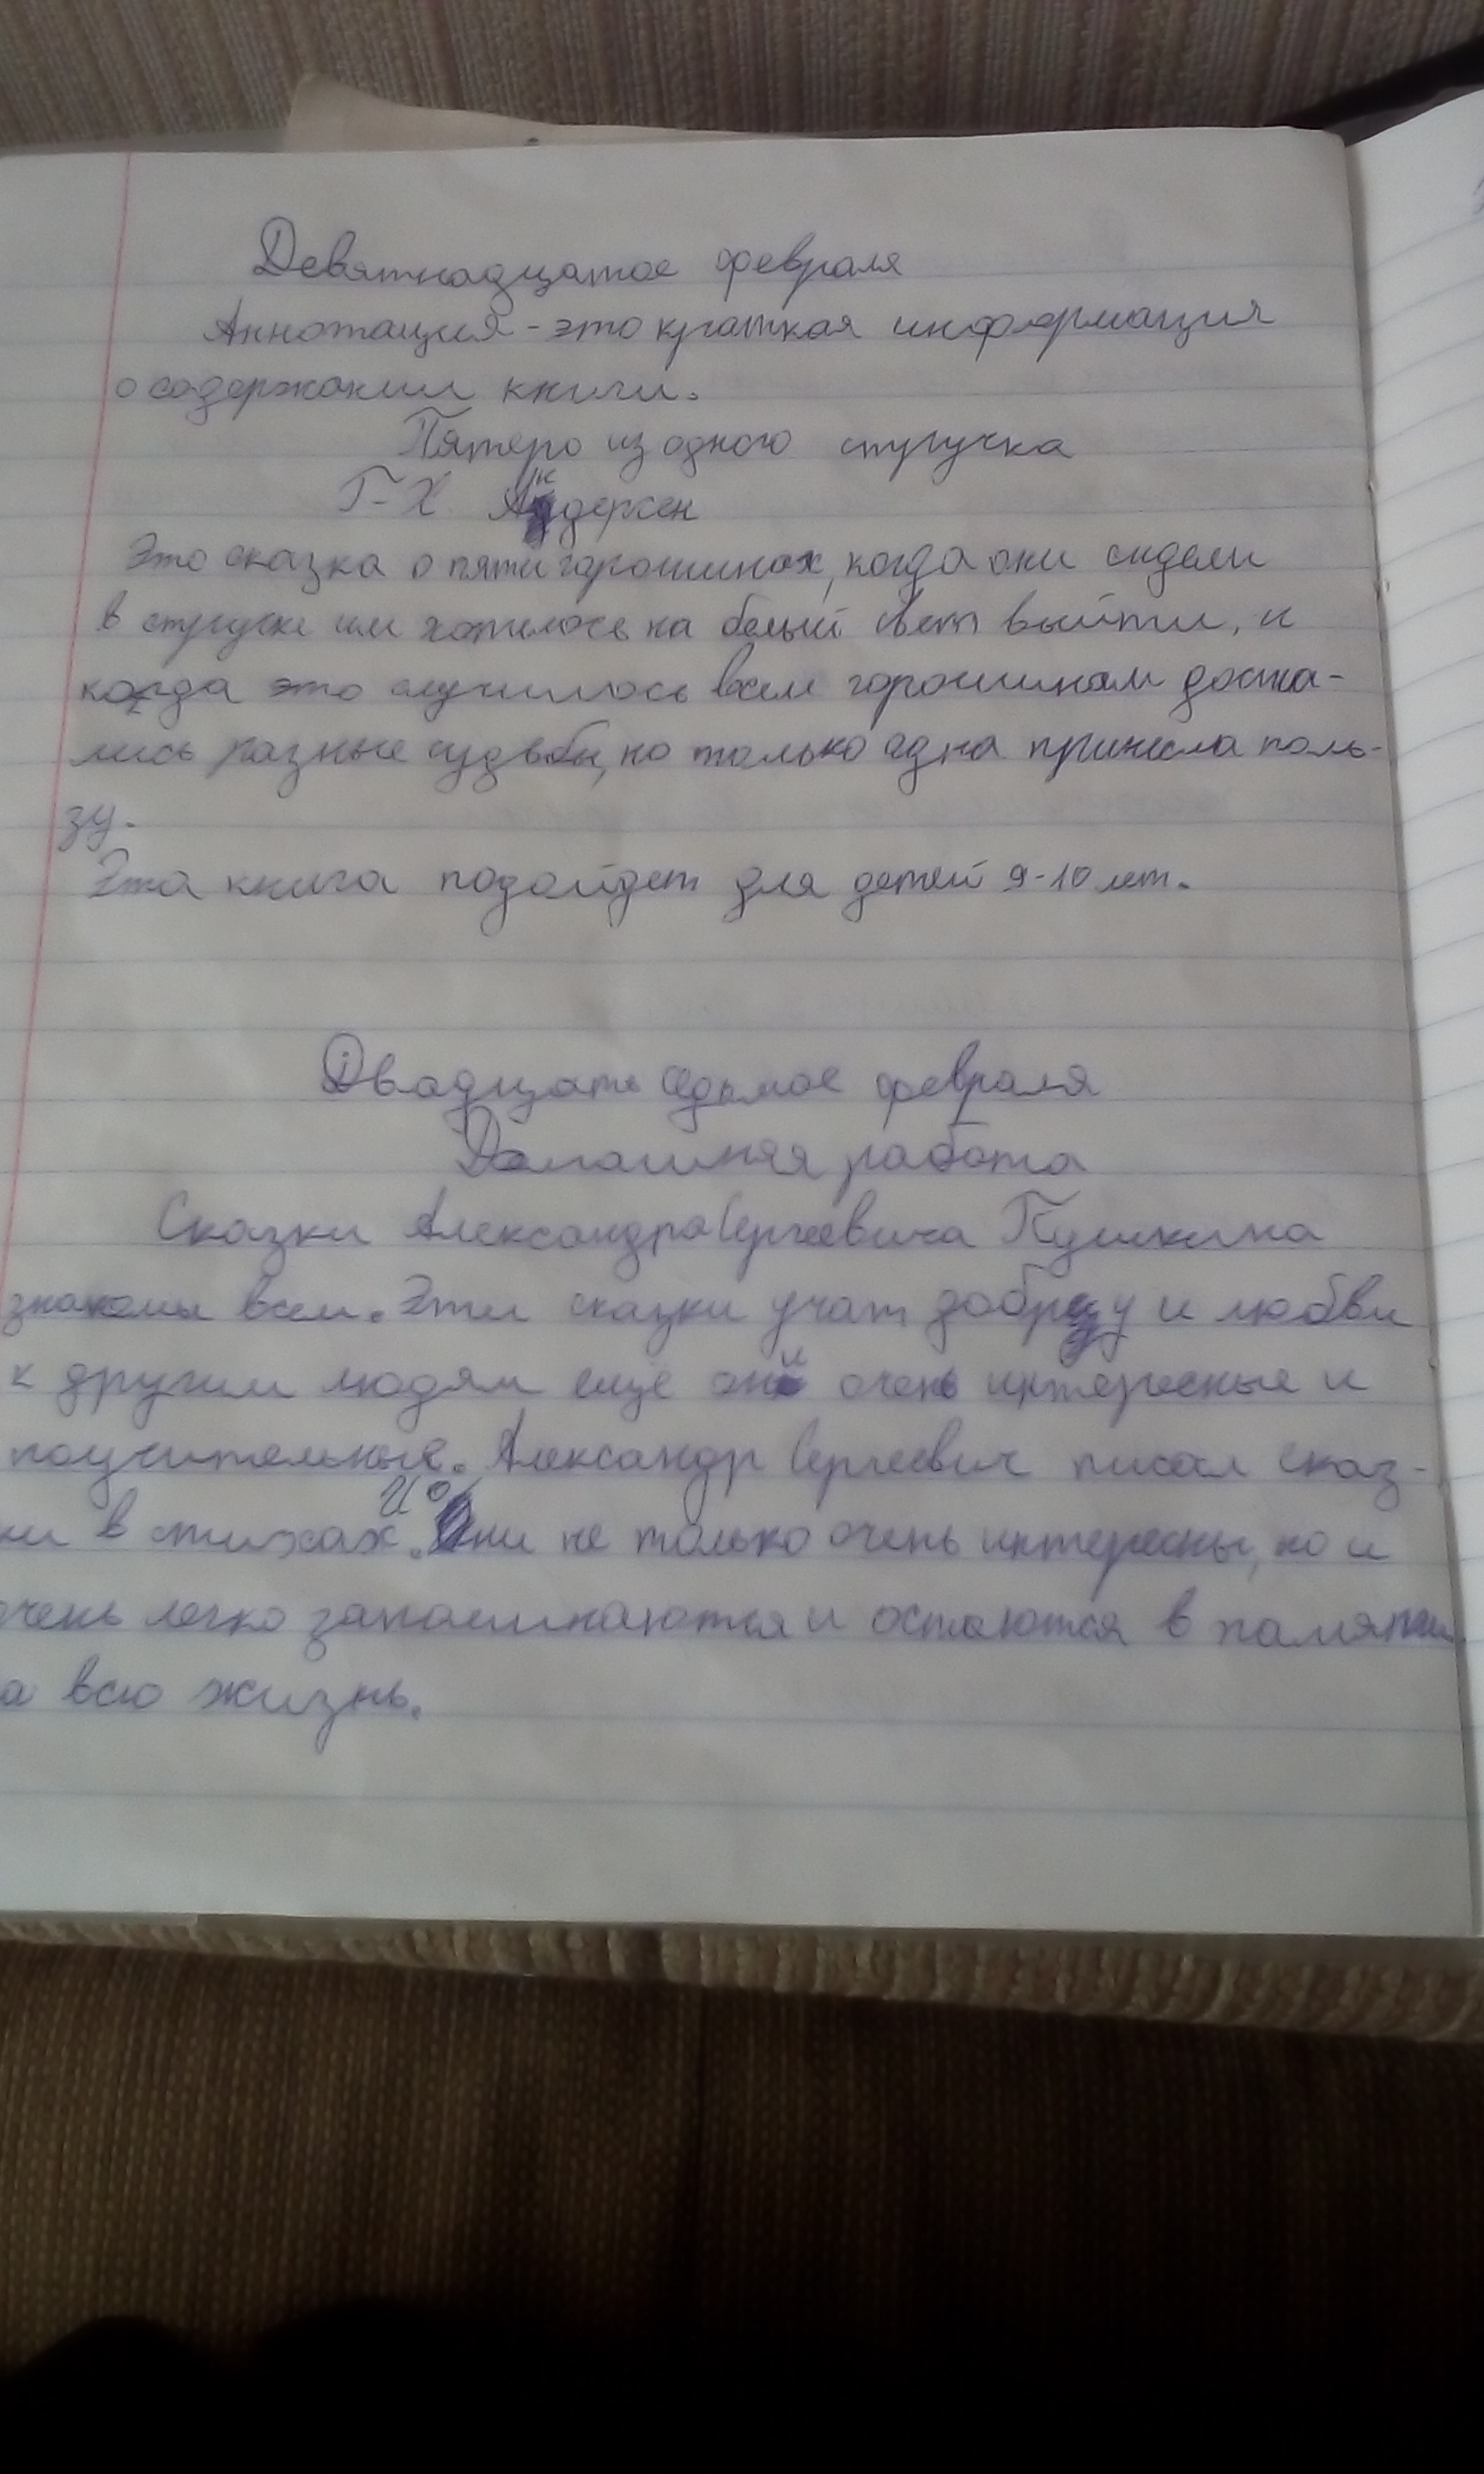 Девятнадцатое февраля
Аннотация - это краткая информация
о содержании книги.
Пятеро из одного стручка
Г-Х Андерсен
Это сказка о пяти горошинах, когда они сидели
в стручке им хотелось на белый свет выйти, и
когда это случилось всем горошинам доста-
лись разные судьбы, но только одна принесла поль-
зу.
Эта книга подойдет для детей 9-10 лет.
Двадцать седьмое февраля
Домашняя работа
Сказки Александра Сергеевича Пушкина
знакомы всем. Эти сказки учат добру и любви
к другим людям еще они очень интересные и
поучительные. Александр Сергеевич писал сказ-
ки в стихах. И они не только очень интересны, но и
очень легко запоминаются и остаются в памяти
а всю жизнь.